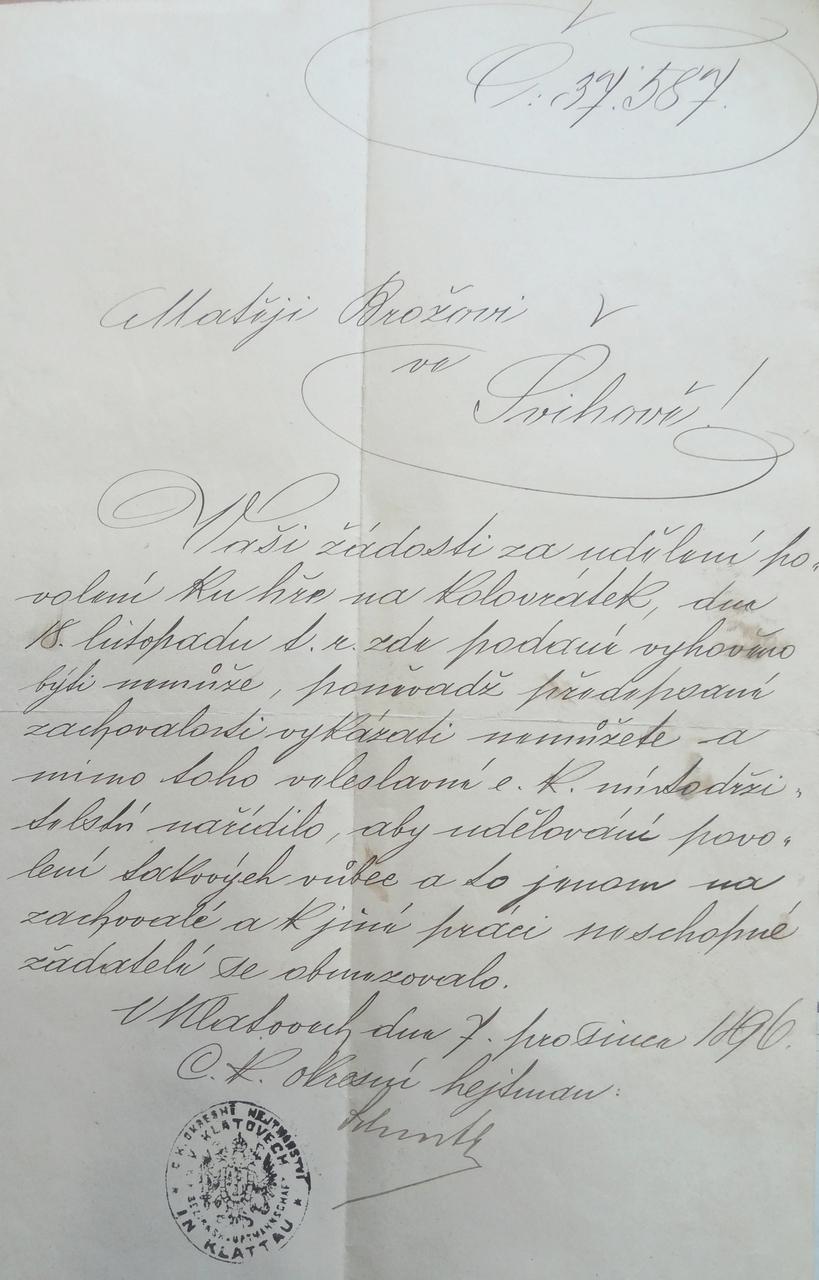 Č: 37.587.
Matěji Brožovi
ve
Švihově!
Vaši žádosti za udělení po-
volení ku hře na kolovrátek, dne
18. listopadu t. r. zde podané vyhověno
býti nemůže, poněvadž předepsané
zachovalosti vykázati nemůžete a
mimo toho veleslavné c. k. místodrži-
telství nařídilo, aby udělování povo-
lení takových vůbec a to jenom na
zachovalé a k jiné práci neschopné
žadatelé se obmezovalo.
V Klatovech dne 7. prosince 1896.
C. k. okresní hejtman:
C. K. OKRESNÍ HEJTMANSTVÍ
V KLATOVECH
BEZIRKSHAUPTMANNSCHAFT
IN KLATTAU